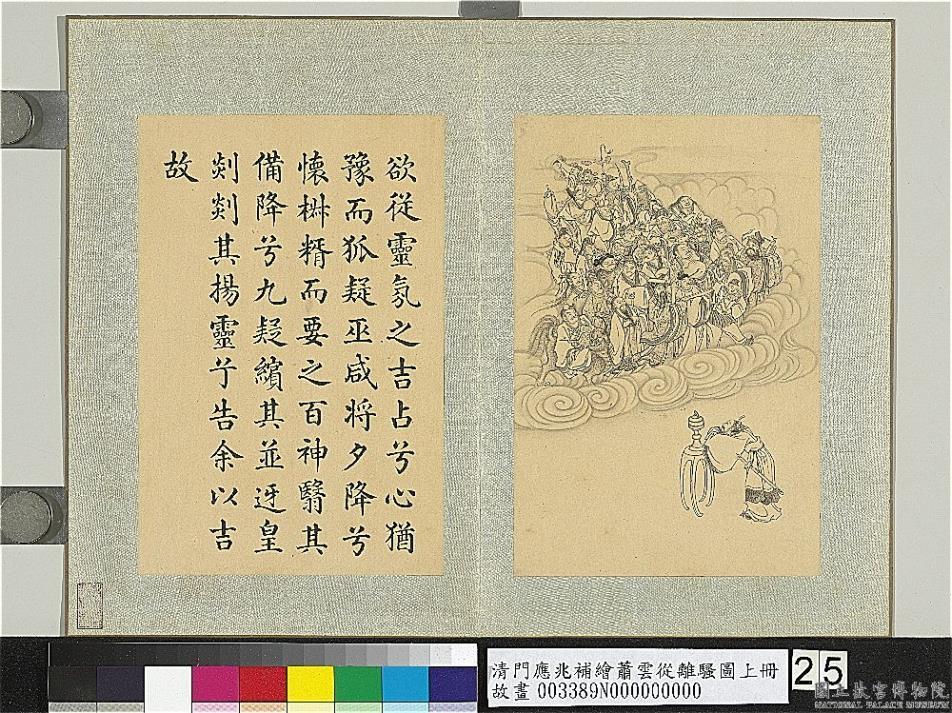 欲從靈氛之吉占兮心猶
豫而狐疑巫咸将夕降兮
懷椒糈而要之百神翳其
備降兮九疑繽其並迓皇
剡剡其揚靈兮告余以吉
故
清門應兆補繪蕭雲從離騷圖上冊
故畫 003389N000000000
25
國立故宮博物院
NATIONAL PALACE MUSEUM